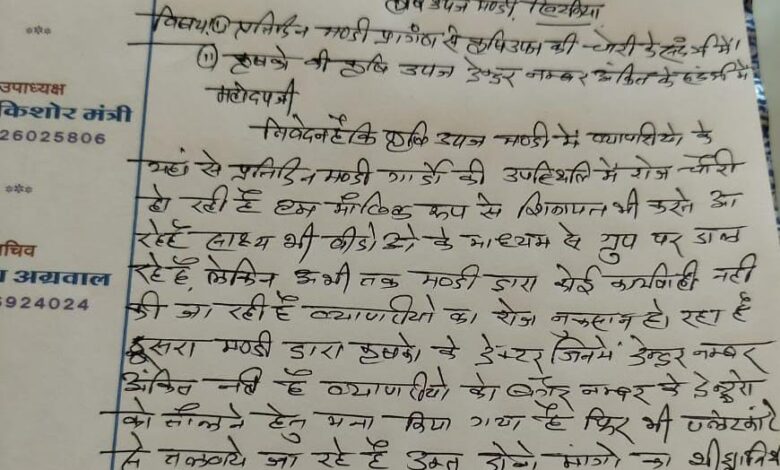 कृषि उपज मण्डी, खिरकिया
विषय:(i) प्रतिदिन मण्डी प्रांगण से कृषि उपज की चोरी के संदर्भ में।
(ii) कृषको की कृषि उपज टेन्डर नम्बर अंकित के संदर्भ में
महोदय जी
निवेदन है कि कृषि उपज मण्डी में व्यापारीयो के
यहां से प्रतिदिन मण्डी गार्डो की उपस्थिति में रोज चोरी
हो रही है हम मौखिक रूप से शिकायत भी करते आ
रहे है साक्ष्य भी वीडीओ के माध्यम से ग्रुप पर डाल
रहे है, लेकिन अभी तक मण्डी द्वारा कोई कार्यवाही नही
की जा रही है व्यापारीयो का रोज नुकसान हो रहा है
दूसरा मण्डी द्वारा कृषको के जिनमें टेन्डर नम्बर
अंकित नही है व्यापारीयो को बगैर नम्बर के
को तौलने हेतु मना किया गया है फिर भी प्लेटकांटे
से तुलवाये जा रहे है उक्त दोनो मांगो का
***
उपाध्यक्ष
किशोर मंत्री
26025806
***
चिव
अग्रवाल
6924024